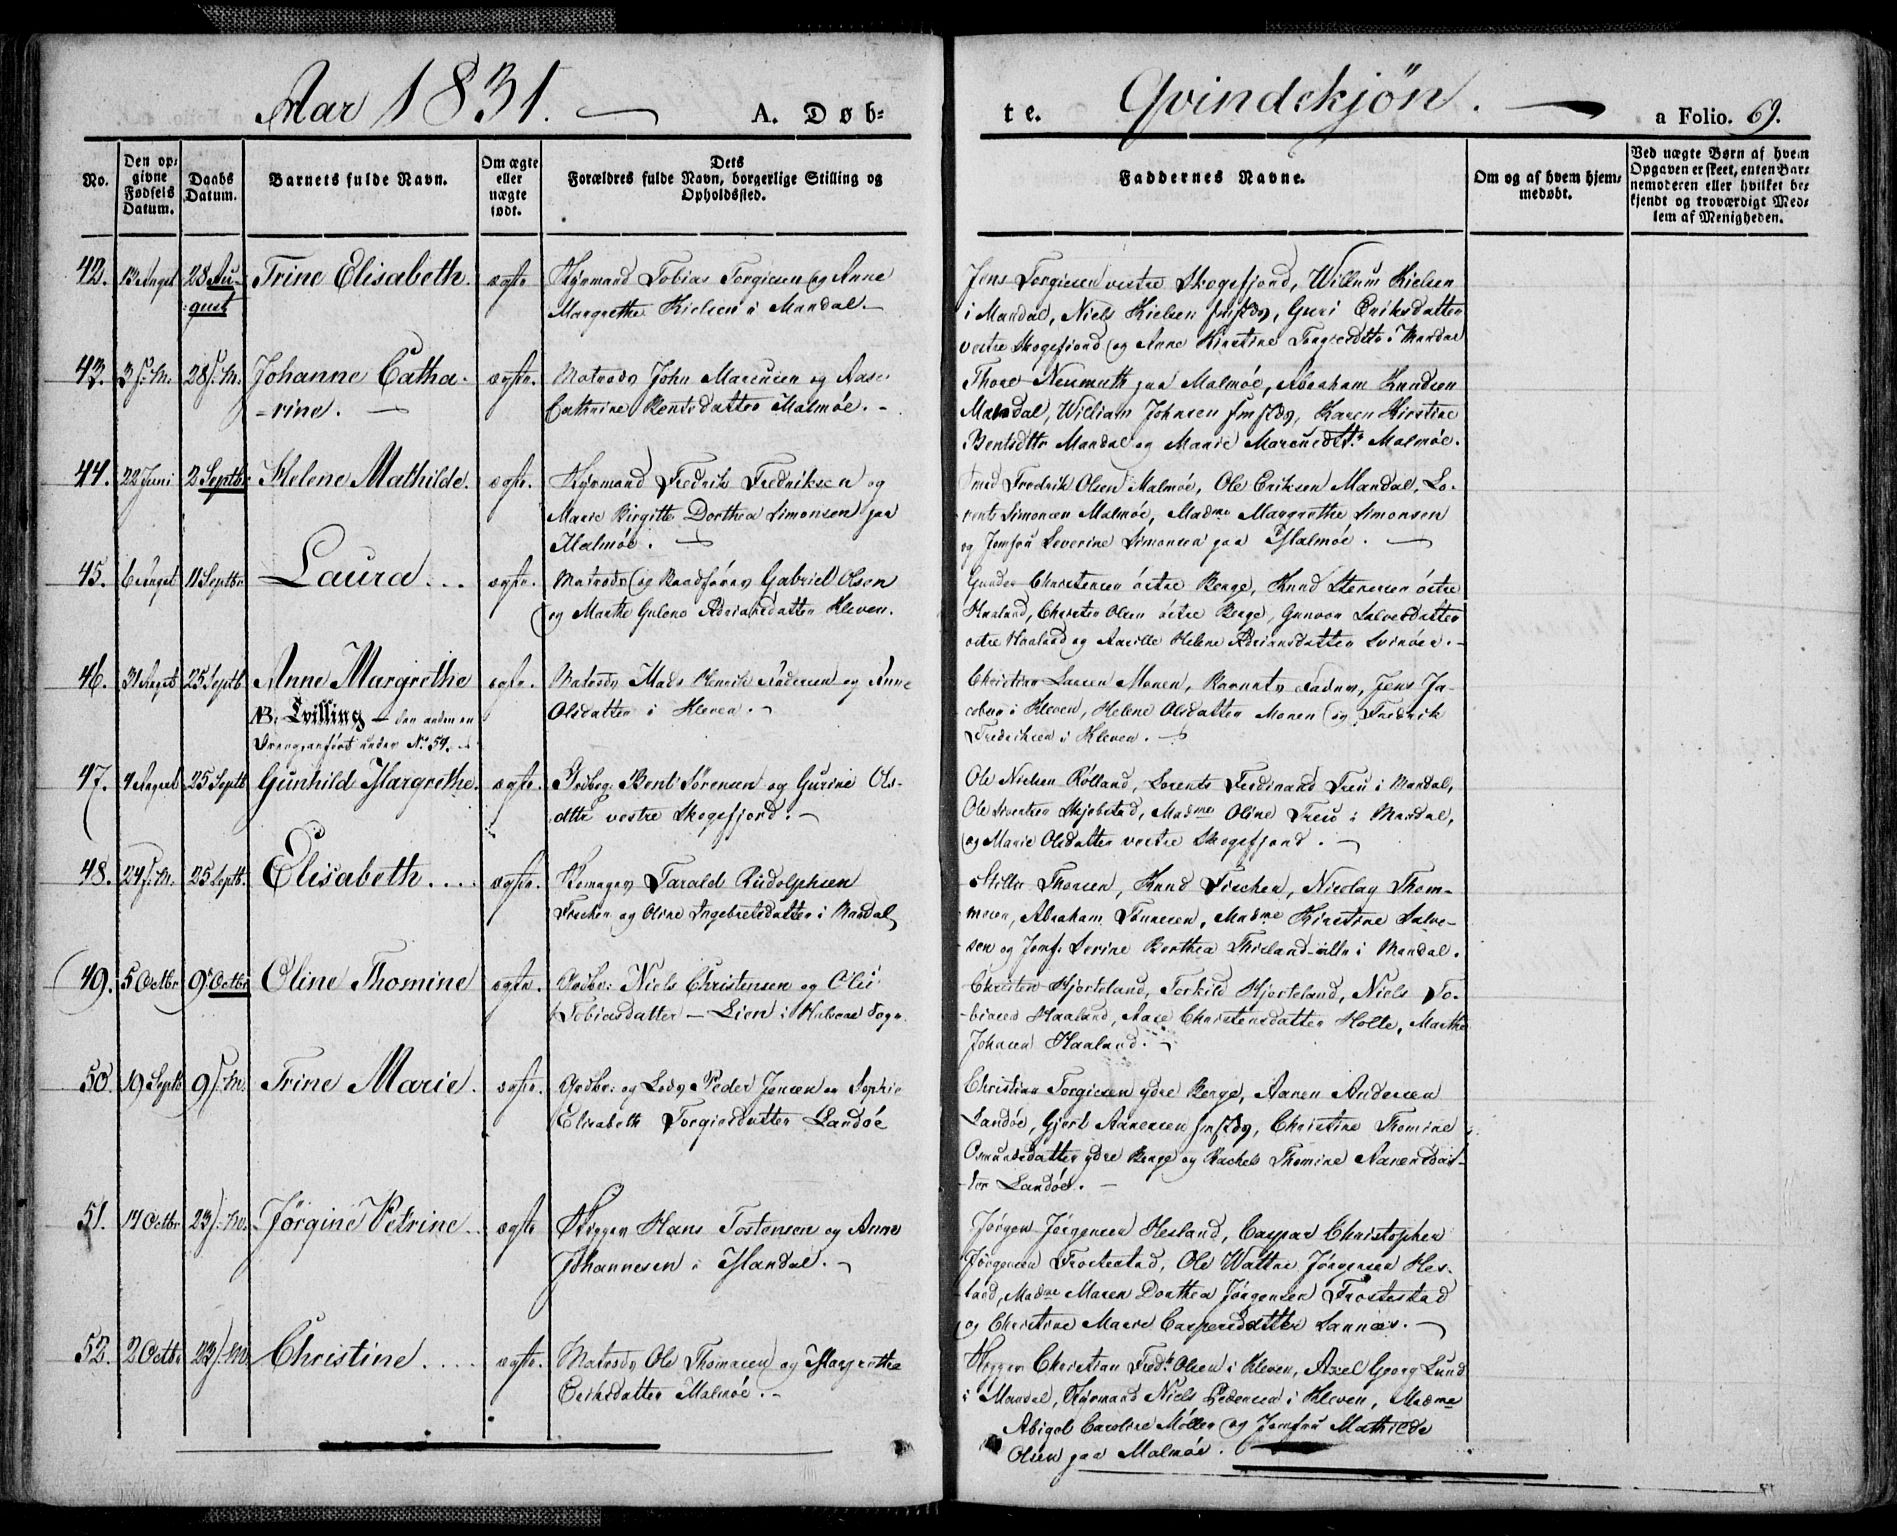 Aar 1831. A. Døb=
te. Qvindekjøn. a Folio. 69.
No.
Den op=
givne
Fødsels
Datum.
Daabs
Datum.
Barnets fulde Navn.
Om ægte
eller
uægte
født.
Dets
Forældres fulde Navn, borgerlige Stilling og
Opholdssted.
Faddernes Navne.
Om og af hvem hjem=
medøbt.
Ved uægte Børn af hvem
Opgaven er skeet, enten Bar=
nemoderen eller hvilket be=
kjendt og troværdigt Med=
lem af Menigheden.
42. 13 Augst 28 Au-
gust
Trine Elisabeth ægte
Styrmand Tobias Torgiesen og Anne
Margrethe Nielsen i Mandal.
Jens Torgiesen vestre Skogsfjord, Willum Nielsen
i Mandal, Niels Nielsen, Guri Eriksdatter
vestre Skogsfjord og Anne Kirstine i Mandal
43. 3 s. M. 28 s. M. Johanne Catha-
rine. ægte.
Matros John Marcussen og Aase
Cathrine Bentsdatter Malmøe.
Thore Neumuth paa Malmøe, Abraham Knudsen
Mandal, William Johnsen, Karen Kirstine
Bentsdttr Mandal og Marie Marcusdtr Malmøe.
44. 22 Juni 2 Septbr Helene Mathilde. ægte.
Styrmand Fredrik Fredriksen og
Marie Birgitte Dorthea Simonsen paa
Malmøe.
Fredrik Olsen Malmøe, Ole Eriksen Mandal, Lo-
rents Simonsen Malmøe, Madme Margrethe Simonsen
og Jomfru Severine Simonsen paa Malmøe.
45. 6 Augst 11 Septbr Laura ægte.
Matros og Gabriel Olsen
og Marthe Gulene Adriansdatter Kleven.
Gunder Christensen østre Berge, Knud Stensen østre
Haaland, Christen Olsen østre Berge, Gunvor Salvesdatter
østre Haaland og Helene Adriansdatter Svinøer.
46. 31 Augst 25 Septb. Anne Margrethe
NB: Tvilling – den anden en
Dreng, anført under No 54.
ægte.
Matros Mads Henrik Andersen og Anne
Olsdatter i Kleven.
Christian Larsen Monen, Barnets Fader, Jens Ja-
cobsen i Kleven, Helene Olsdatter Monen og Fredrik
Fredriksen i Kleven.
47. 4 Augst 25 Septb Gunhild Margrethe. ægte.
Bent Sørensen og Gurine Ols-
dttr vestre Skogsfjord.
Ole Nielsen Rølland, Lorents Ferdinand Treu i Mandal,
Ole Sivertsen Skjebstad, Madme Oline Treu i Mandal,
og Marie Olsdatter vestre Skogsfjord.
48. 24 s. M. 25 Septb. Elisabeth ægte.
Tarald Rudolphsen
Fischer og Oline Ingebretsdatter i Mandal
Thorsen, Knud Fischer, Nicolay Thom-
mesen, Abraham Tønnesen, Madme Kirstine Salve-
sen og Jomf. Serine Berthea alle i Mandal.
49. 5 Octbr 9 Octbr Oline Thomine ægte.
Niels Christensen og
Tobiasdatter – Lien i Halsaae Sogn.
Christen Hjorteland, Torkild Hjorteland, Niels To-
biasen Haaland, Aase Christensdatter Holte, Marthe
Johnsen Haaland.
50. 19 Septb 9 s. M. Trine Marie. ægte.
Peder Jensen og Sophie
Elisabeth Torgiersdatter Landøe
Christian Torgiesen ydre Berge, Aanen Andersen
Landøe, Gjert Aanensen, Christine Thomine
Osmundsdatter ydre Berge og Rachel Thomine Aanensdat-
ter Landøe.
51. 17 Octbr 23 s. M. Jørgine Petrine ægte
Skipper Hans Tostensen og Anne
Johannesen i Mandal.
Jørgen Jørgensen Hesland, Caspar Christopher
Jørgensen Frostestad, Ole Wattne Jørgensen Hes-
land, Madme Maren Dorthea Jørgensen Frostestad
og Christine Marie Caspersdatter Sannæs.
52. 2 Octbr 23 s. M. Christine ægte.
Matros Ole Thomasen og Margrethe
Eriksdatter Malmøe.
Skipper Christian Fredk Olsen i Kleven, Axel Georg Lund
i Mandal, Styrmand Niels Pedersen i Kleven, Madme
Abigel Caroline Møller og Jomfru Mathilde
Olsen paa Malmøe.